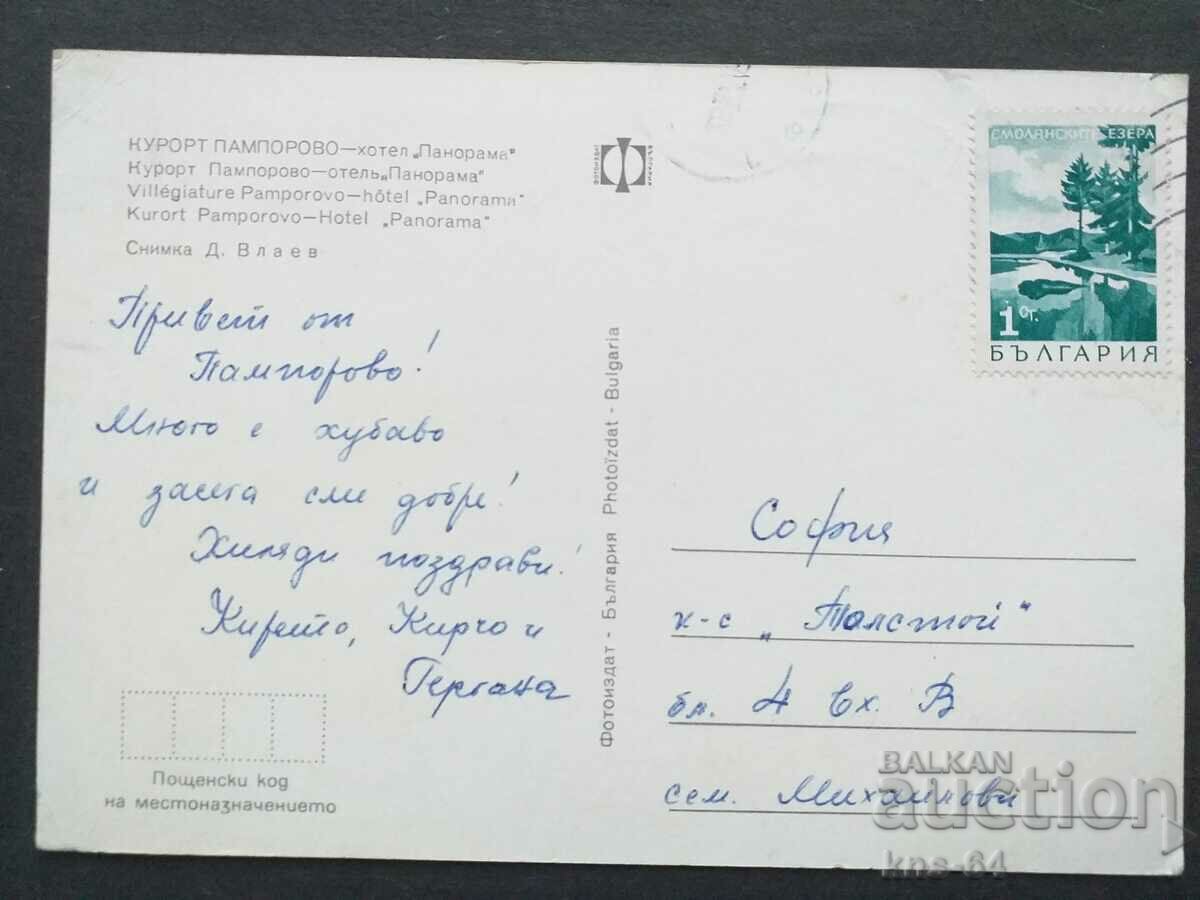 КУРОРТ ПАМПОРОВО—хотел „Панорама"
Курорт Пампорово—отель „Панорама"
Villégiature Pamporovo—hôtel „Panorama"
Kurort Pamporovo—Hotel „Panorama"
Снимка Д. Влаев
Привет от
Пампорово!
Много е хубаво
и засега сме добре!
Хиляди поздрави!
Кирчо и
Гергана
Пощенски код
на местоназначението
Фотоиздат - България Photoïzdat - Bulgaria
ФОТОИЗДАТ
БЪЛГАРИЯ
СМОЛЯНСКИТЕ ЕЗЕРА
1 СТ.
БЪЛГАРИЯ
София
к-с „Толстой"
бл. 4 вх. В
сем. Михайлови
BALKAN
auction
kns-64